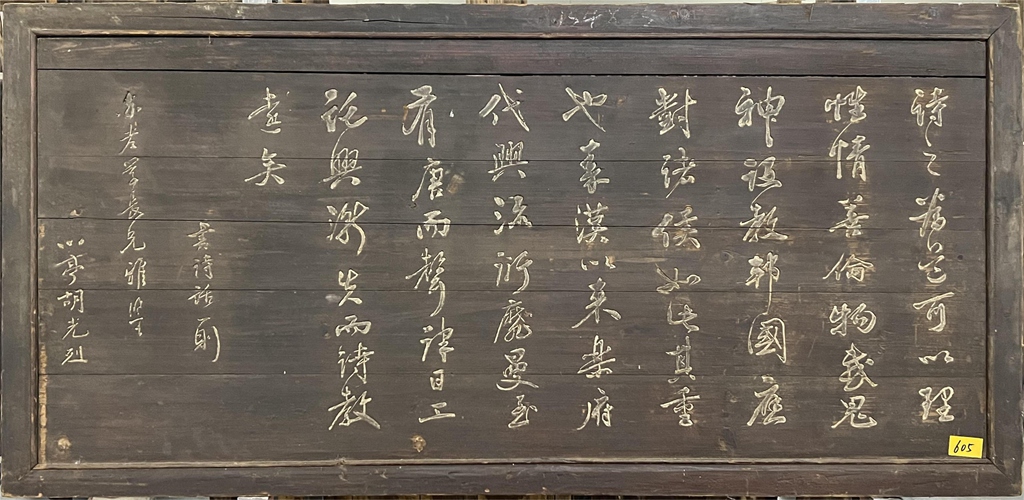 詩之為道可以理
性情善倫物感鬼
神設教邦國應
對諸侯如此其重
也秦漢以來樂府
代興流衍靡曼至
有唐而聲律日工
託興漸失而詩教
遠矣
書詩話一則
老學長兄雅鑒
小亭胡光烈
605